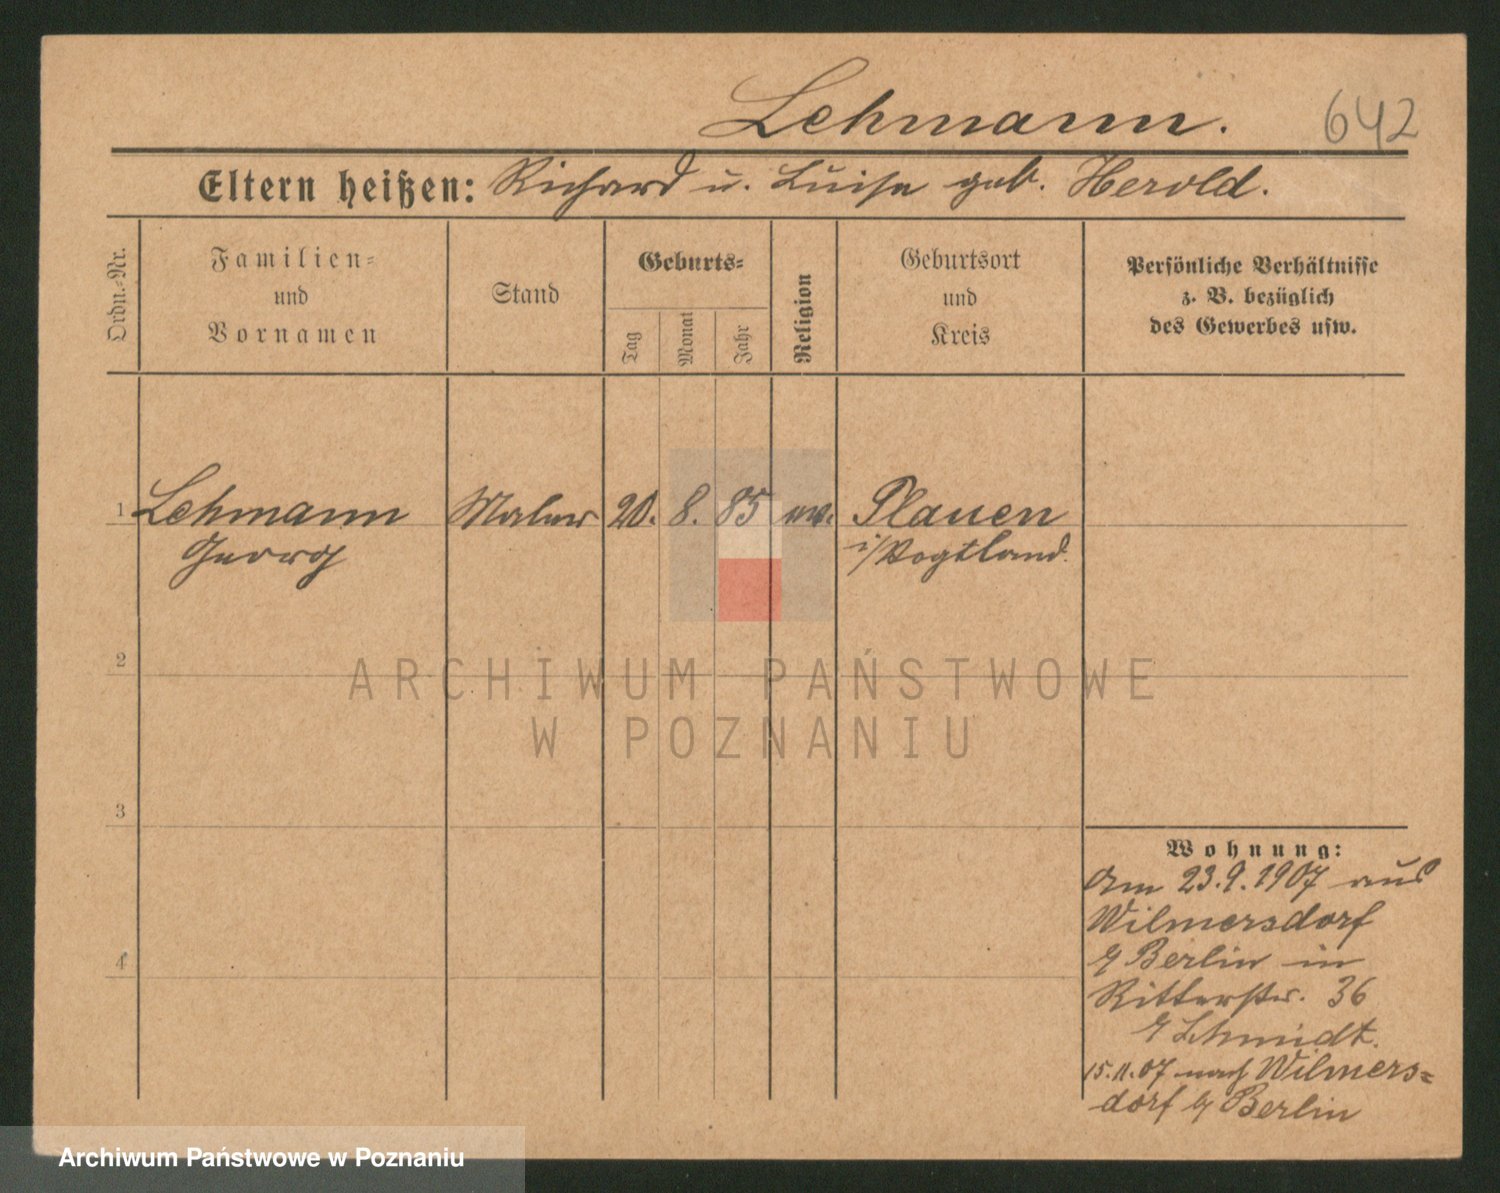 Lehmann. 642
Eltern heißen: Richard u. Luise geb. Herold.
Ordn.-Nr.
Familien-
und
Vornamen
Stand
Geburts-
Tag
Monat
Jahr
Religion
Geburtsort
und
Kreis
Persönliche Verhältnisse
z. B. bezüglich
des Gewerbes usw.
1 Lehmann Maler 20. 8. 85 ev. Plauen
Georg i/Vogtland.
2
ARCHIWUM PAŃSTWOWE
W POZNANIU
3
4
Wohnung:
Am 23.9.1907 aus
Wilmersdorf
b/ Berlin in
Ritterstr. 36
b/ Schmidt.
15.11.07 nach Wilmers-
dorf b/ Berlin
Archiwum Państwowe w Poznaniu